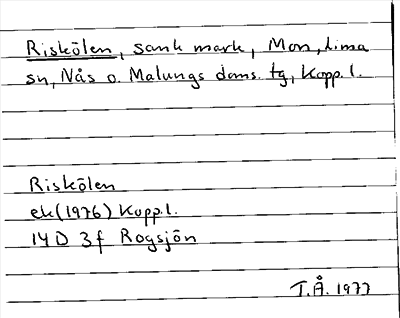 Riskölen, sank mark, Mon, Lima
sn, Nås o. Malungs doms. tg, Kopp. l.
Riskölen
ek (1976) Kopp. l.
14 D 3f Rogsjön
T.Å. 1977